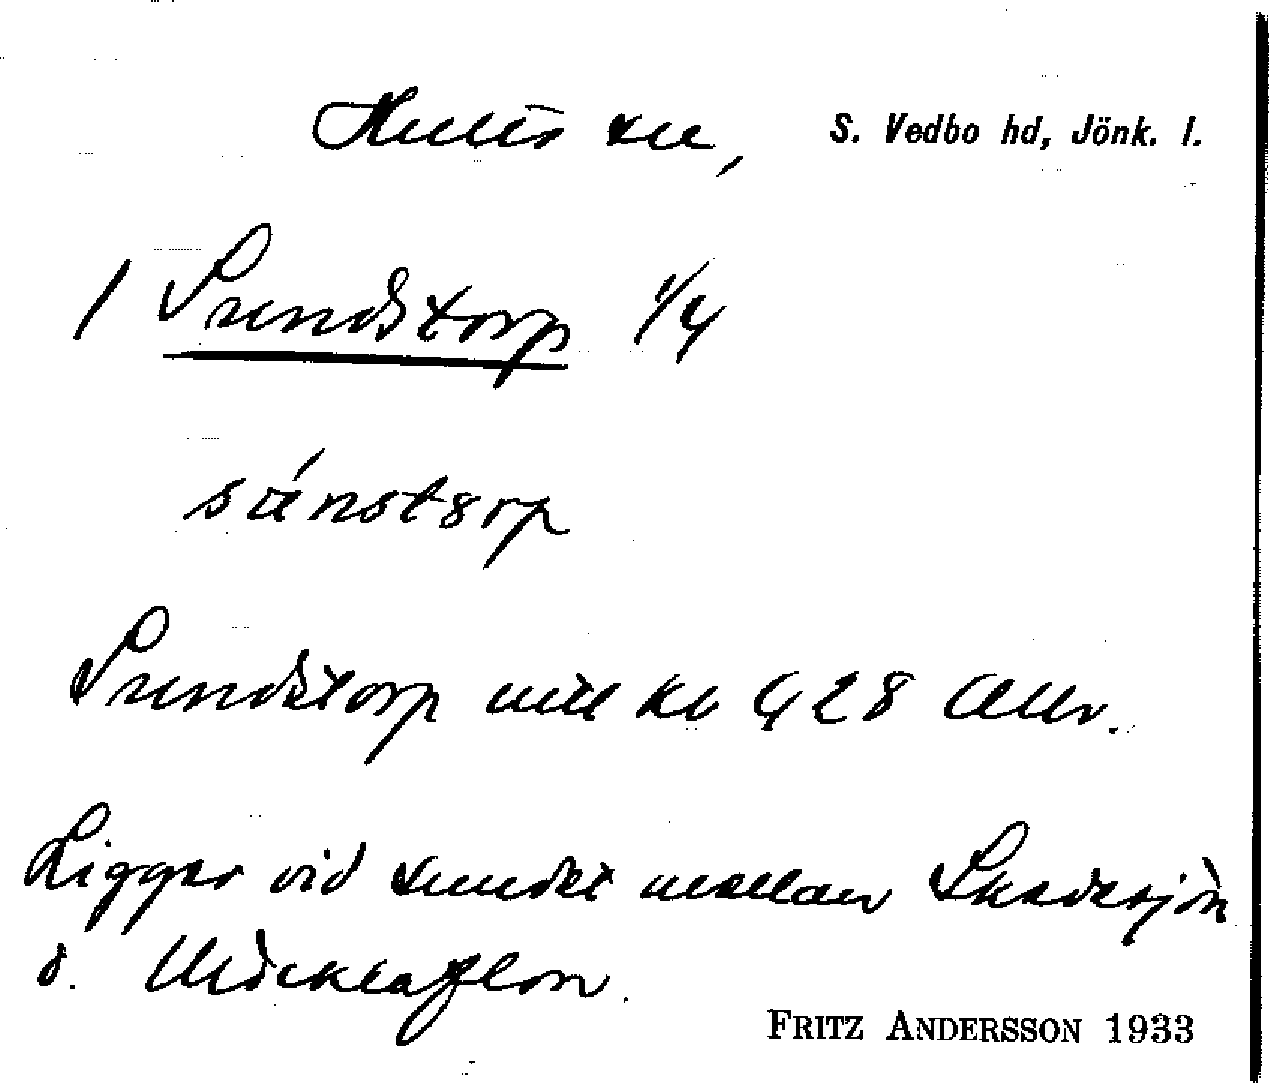 Hults sn, S. Vedbo hd, Jönk. l.
1 Sundstorp 1/4
sánstorp
Sundstorp mtl kb 428 Allv.
Ligger vid sundet mellan Skedesjön
o. Mycklaflon.
FRITZ ANDERSSON 1933